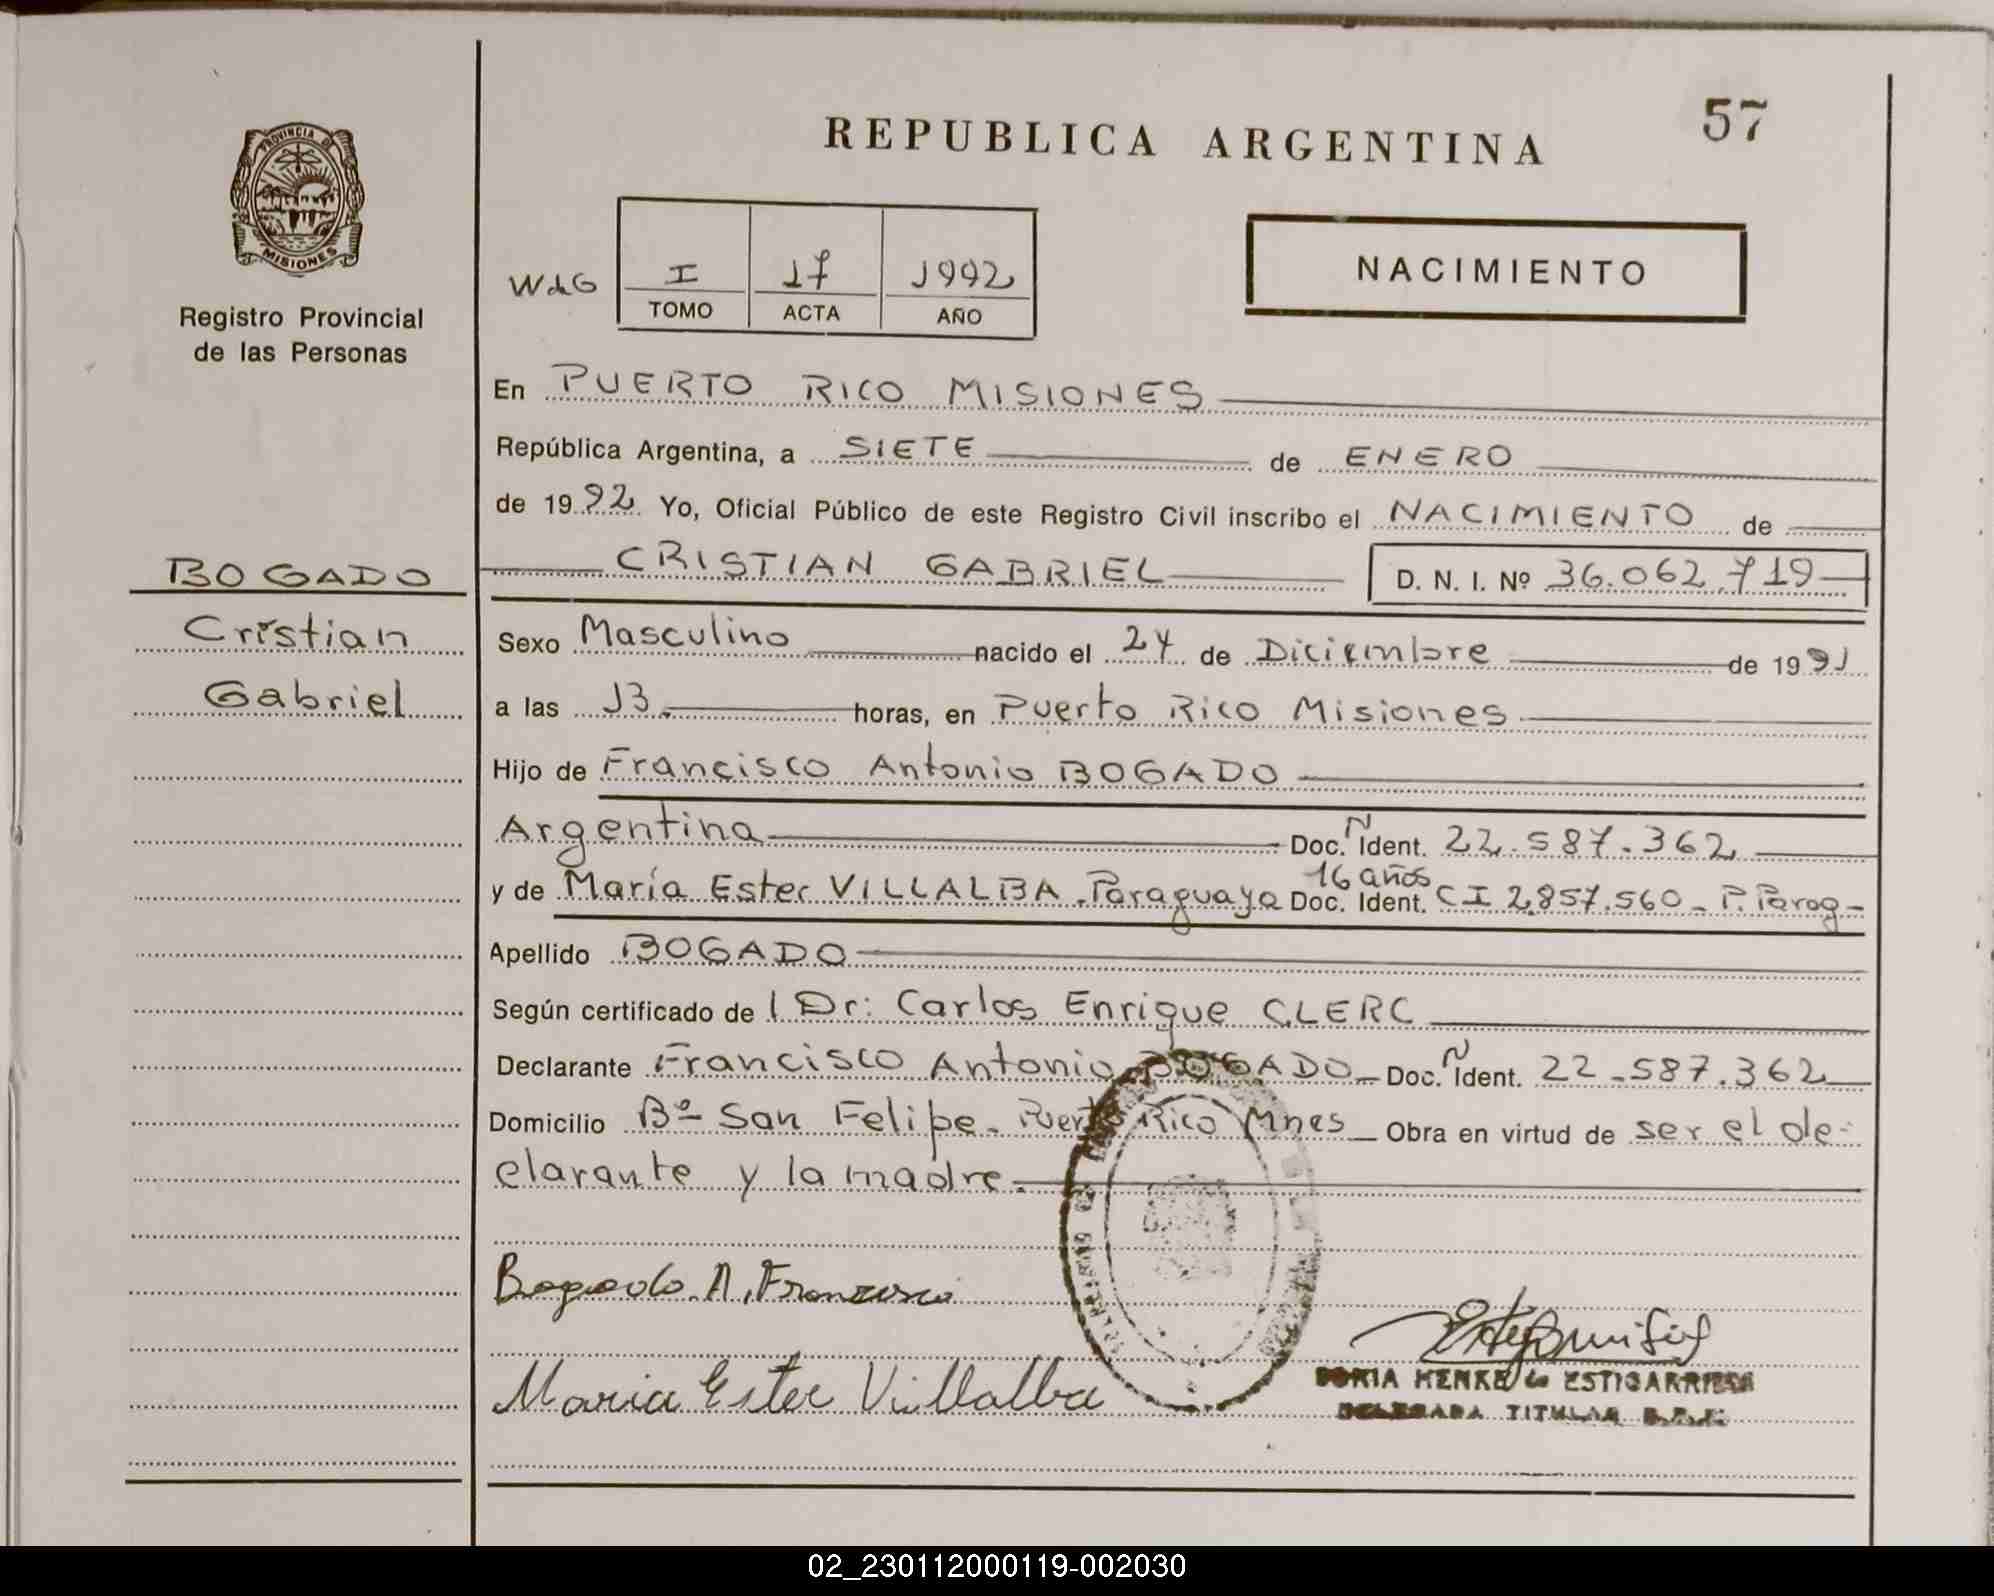 57
REPUBLICA ARGENTINA
PROVINCIA DE
MISIONES
Registro Provincial
de las Personas
I 17 1992
TOMO ACTA AÑO
NACIMIENTO
En PUERTO RICO MISIONES
República Argentina, a SIETE de ENERO
de 1992 Yo, Oficial Público de este Registro Civil inscribo el NACIMIENTO de
CRISTIAN GABRIEL D. N. I. Nº 36.062.719
BOGADO
Cristian
Gabriel
Sexo Masculino nacido el 24 de Diciembre de 1991
a las 13. horas, en Puerto Rico Misiones
Hijo de Francisco Antonio BOGADO
Argentina Doc. N Ident. 22.587.362
16 años
y de María Ester VILLALBA. Paraguaya Doc. Ident. CI 2.857.560 - P. Parag-
Apellido BOGADO
Según certificado de l Dr: Carlos Enrique CLERC
Declarante Francisco Antonio BOGADO Doc. N Ident. 22.587.362
Domicilio Bº San Felipe. Puerto Rico Mnes Obra en virtud de ser el de-
clarante y la madre.
Bogado A. Francisco
Maria Ester Villalba
HENKE de ESTIGARRIBIA
DELEGADA TITULAR
02_230112000119-002030